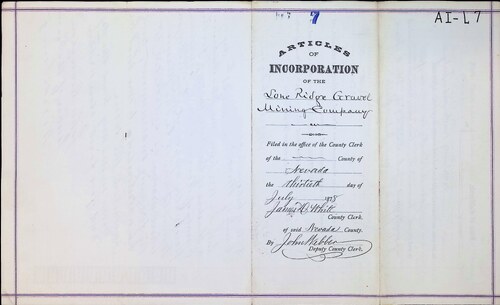 No 7
7
AI-L7
ARTICLES
OF
INCORPORATION
OF THE
Lone Ridge Gravel
Mining Company
Filed in the office of the County Clerk
of the County of
Nevada
the thirtieth day of
July 1878
James H. White
County Clerk.
of said Nevada County.
By John Webber
Deputy County Clerk.